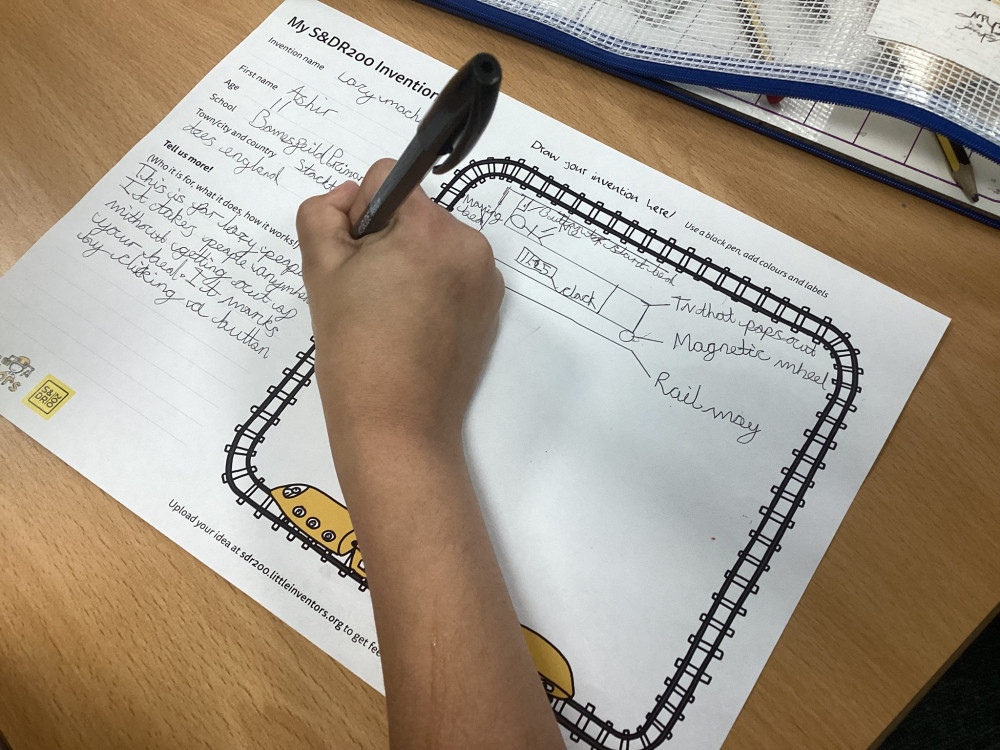 My S&DR200 Invention
Invention name Lazy mach
First name Ashir
Age 11
School
Town/city and country Stockt
tees england
Tell us more!
(Who it is for, what it does, how it works!)
This is for lazy people
It takes people anywhere
without getting out of
your bed. It works
by clicking a button
S&
DR
Upload your idea at sdr200.littleinventors.org to get fee
Draw your invention here!
Use a black pen, add colours and labels
Moving
bed
Button to start bed
Me
1:45
clock
Tv that pops out
Magnetic wheel
Railway